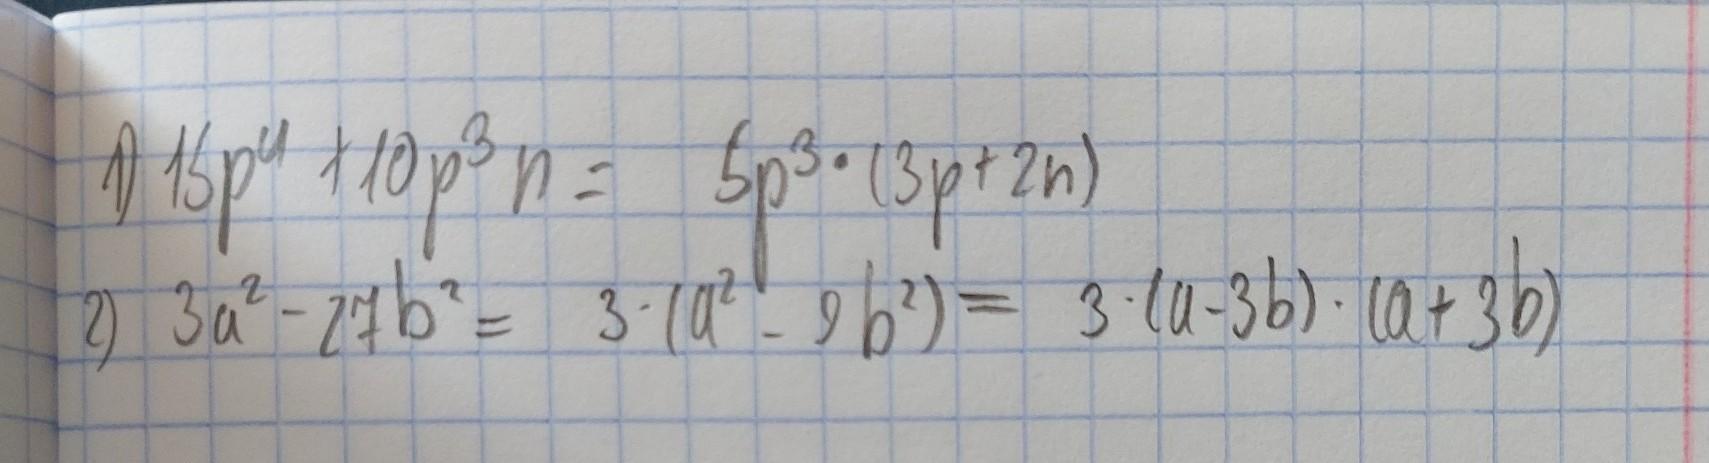 1) 15p⁴ + 10p³n = 5p³·(3p+2n)
2) 3a² - 27b² = 3·(a² - 9b²) = 3·(a-3b)·(a+3b)